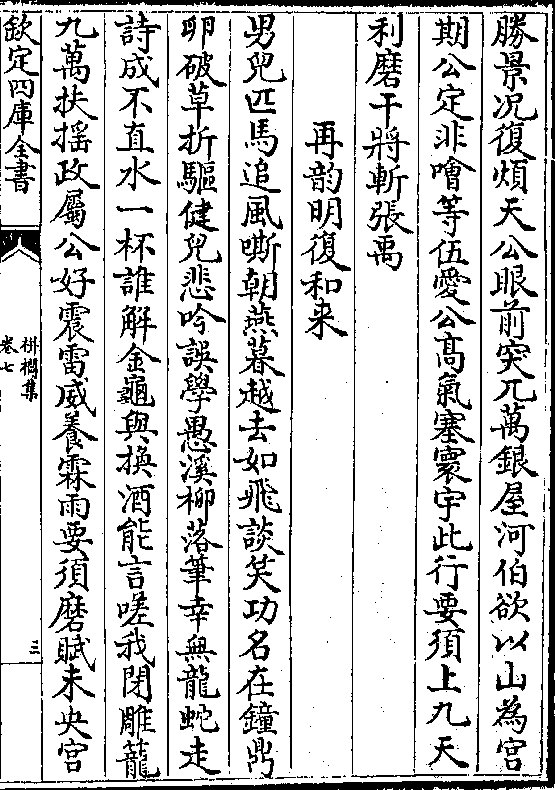 勝景况復煩天公眼前突兀萬銀屋河伯欲以山為宫
期公定非噲等伍愛公髙氣塞寰宇此行要須上九天
利磨干將斬張禹
再韵明復和来
男兒匹馬追風嘶朝燕暮越去如飛談笑功名在鐘鼎
卵破草折驅健兒悲吟誤學愚溪柳落筆幸無龍蛇走
詩成不直水一杯誰解金龜與換酒能言嗟我閉雕籠
九萬扶揺政屬公好震雷威養霖雨要須磨賦未央宫
欽定四庫全書
栟櫚集
卷七
三